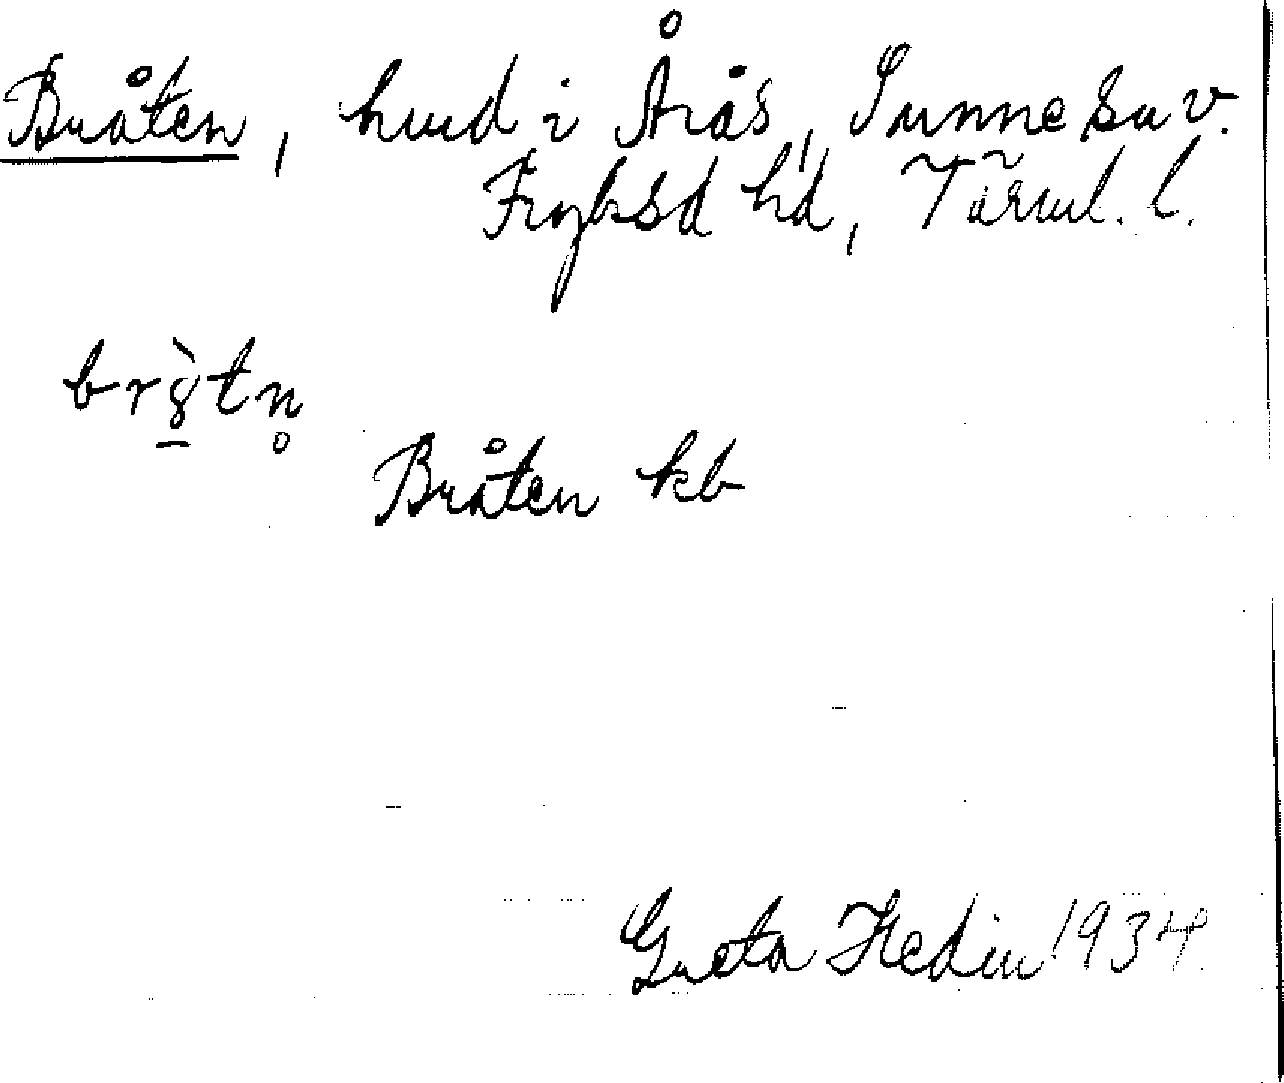 Bråten, hmd i Årås, Sunne sn v.
Fryksd hd, Värml. l.
br8̱̀tn̥
Bråten kb
Greta Hedin 1934